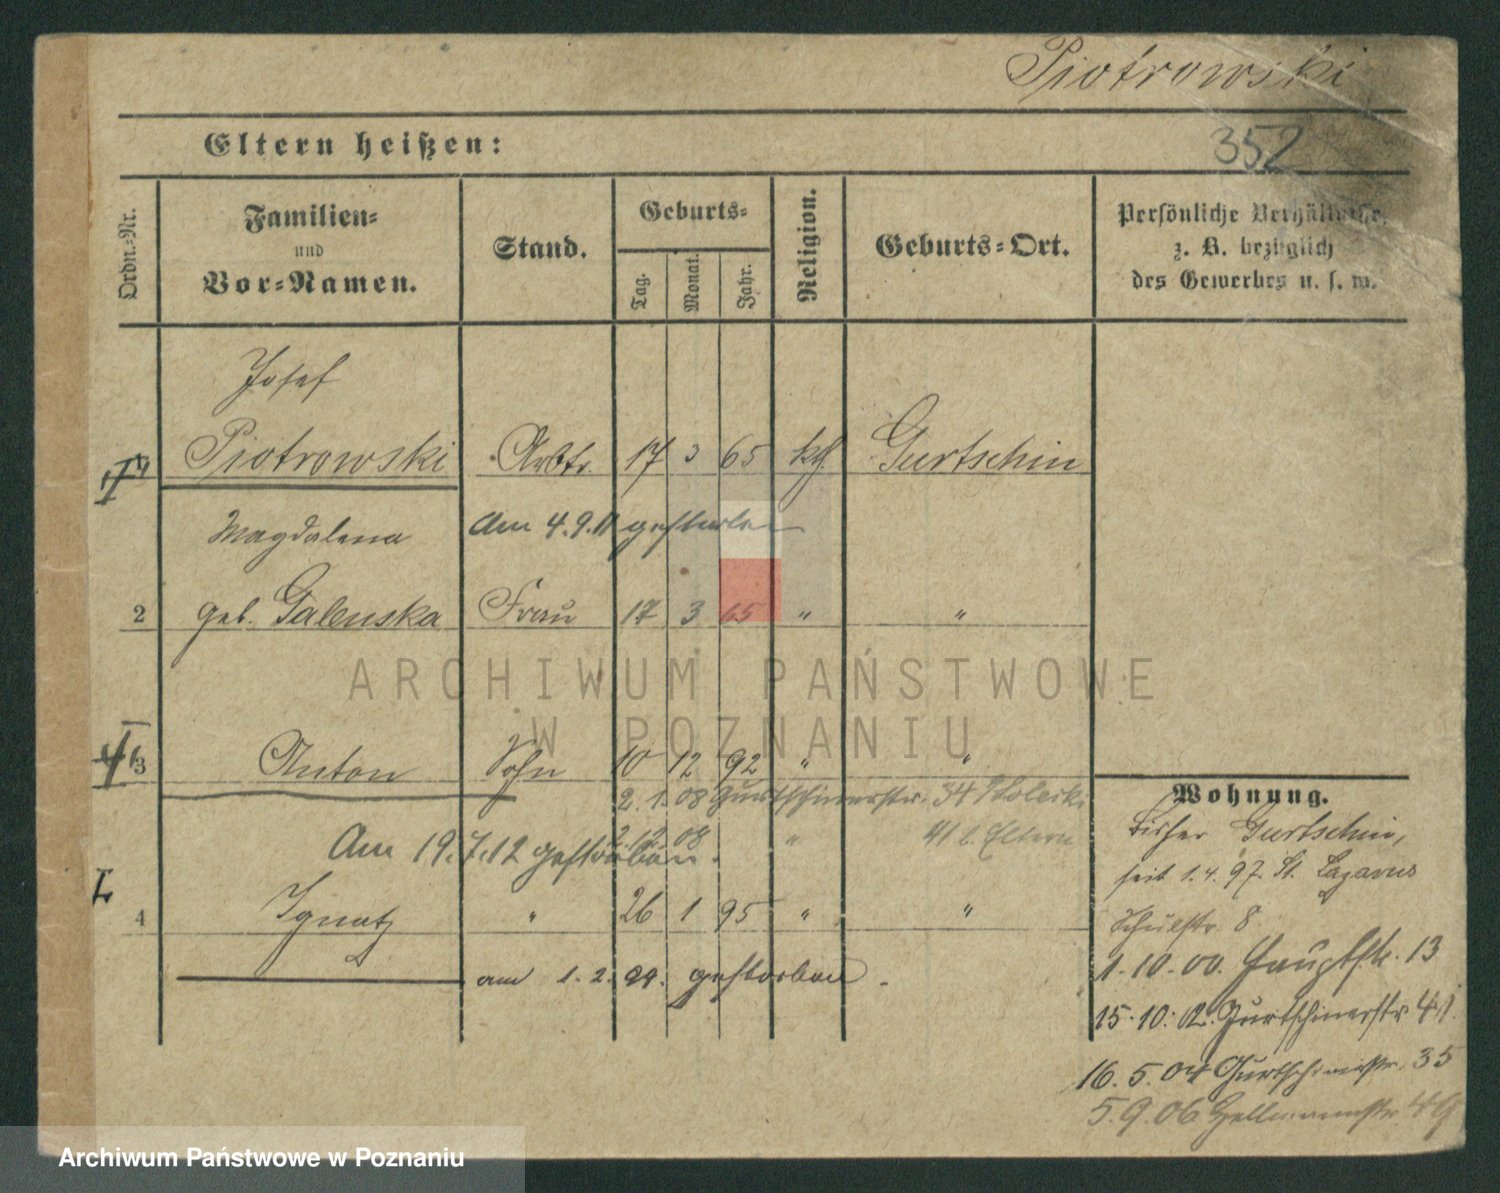 Piotrowski
Eltern heißen:
352
Ordn.-Nr.
Familien-
und
Vor-Namen.
Stand.
Geburts-
Tag.
Monat.
Jahr.
Religion.
Geburts-Ort.
Persönliche Verhältnisse,
z. B. bezüglich
des Gewerbes u. s. w.
Josef
Piotrowski Arbtr. 17 3 65 kth. Gurtschin
Magdalena Am 4.9.11 gestorben
2 geb. Galenska Frau 17 3 65 " "
ARCHIWUM PAŃSTWOWE
W POZNANIU
3 Anton Sohn 10 12 92 " "
2.1.08 Gurtschinerstr. 34
08 " 41 b. Eltern
Am 19.7.12 gestorben.
4 Ignatz " 26 1 95 " "
am 1.2. gestorben.
Wohnung.
bisher Gurtschin,
seit 1.4.97 St. Lazarus
Schulstr. 8
1.10.00. Hauptstr. 13
15.10.02. Gurtschinerstr. 41.
16.5.04 Gurtschinerstr. 35
5.9.06 49
Archiwum Państwowe w Poznaniu